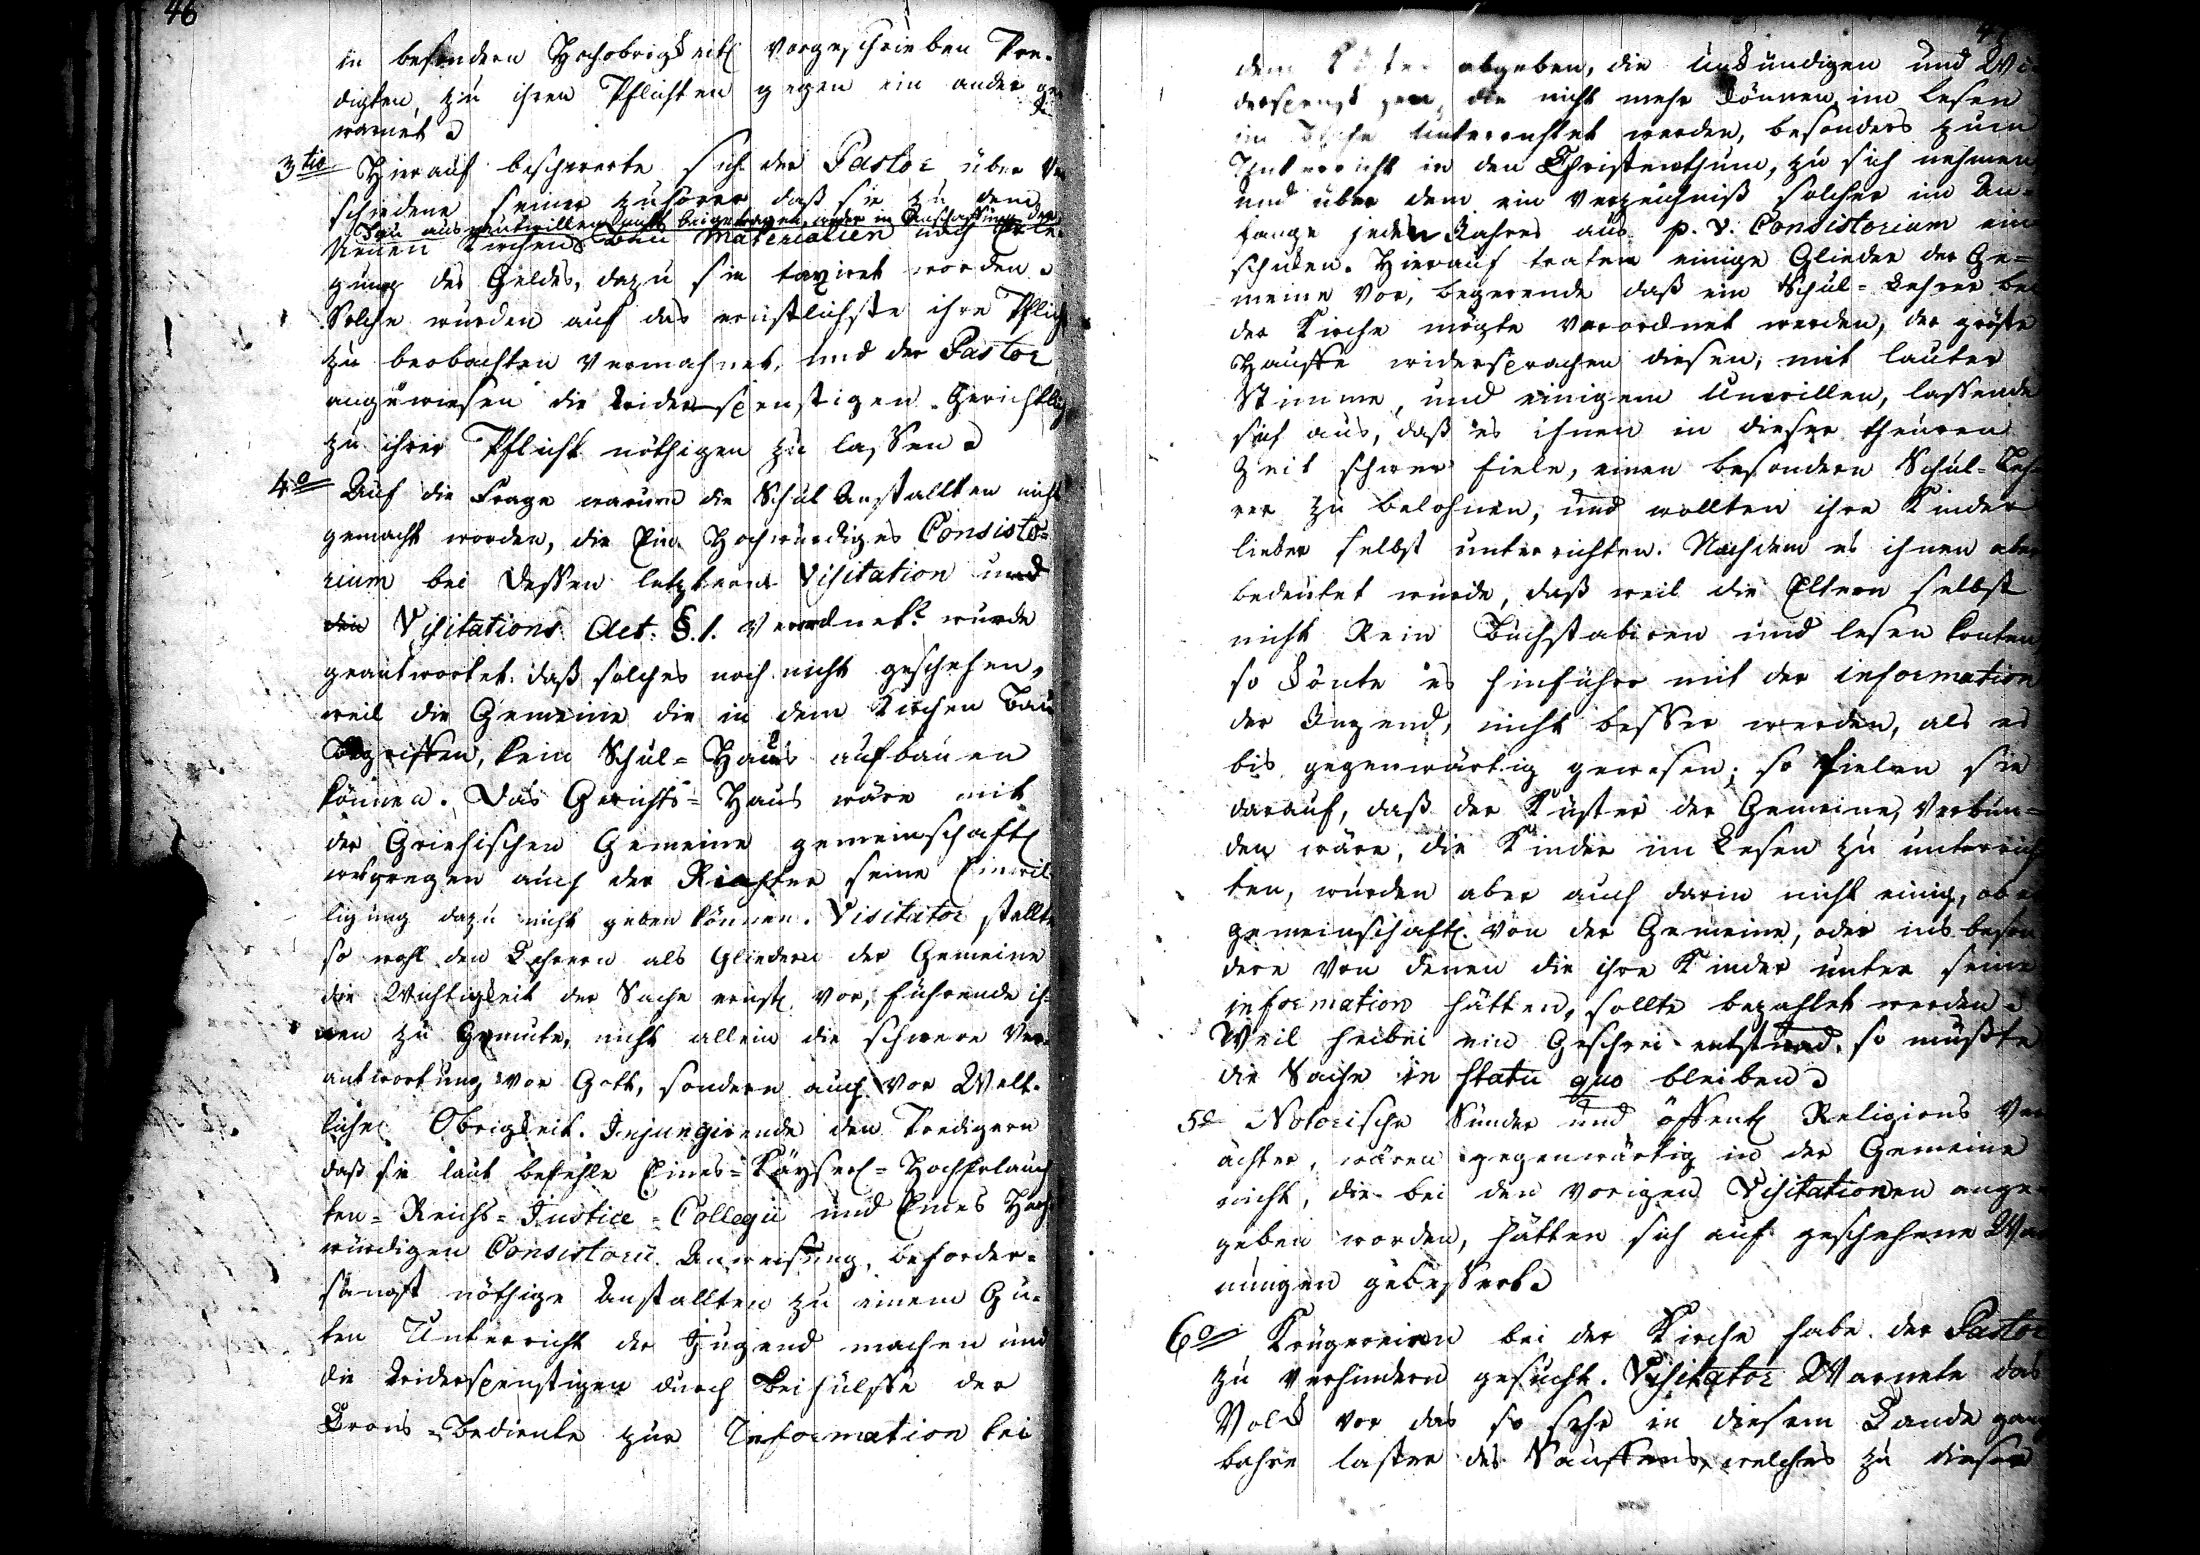 46
in besondern Hochobrigkeitl vorgeschrieben Pre-
digten, zu ihren Pflichten gegen ein ander ge
warnet.
3tio Hierauf beschwerte sich der Pastor über Ver
schiedene seiner zuhörer daß sie zu dem
Bau aus mutwillen nicht beigetragen, oder in Anschaffung der
Neuen Kirchen Bau Materialien nach Erle-
gung des Geldes, dazu sie taxiret worden.
Solche wurden auf das ernstlichste ihre Pflicht
zu beobachten vermahnet, und der Pastor
angewiesen die widerspenstigen Gerichtlich
zu ihrer Pflicht nöthigen zu lassen.
4o Auf die Frage warum die Schul Anstallten nicht
gemacht worden, die Ein. Hochwürdiges Consisto-
rium bei dessen letztern Visitation und
den Visitations Act. §.1. verordnet? wurde
geantwortet daß solches noch nicht geschehen,
weil die Gemeine die in dem Kirchen Bau
Begriffen, kein Schul-Haus aufbauen
können. Das Gerichts-Haus wäre mit
der Griechischen Gemeine gemeinschaftl
weswegen auch der Richter seine Einwil-
ligung dazu nicht geben können. Visitator stellte
so wohl den Lehrern als Gliedern der Gemeine
die Wichtigkeit der Sache ernstl. vor, führende ih-
nen zu Gemute, nicht allein die schwere Ver-
antwortung vor Gott, sondern auch vor Welt-
licher Obrigkeit. Injungirende den Predigern
daß sie laut befehle Eines-Käyserl-HochErlauch
ten-Reichs-Justice-Collegii und Eines Hoch
würdigen Consistorii Anweisung, beforder-
sangst nöthige Anstallten zu einem Gu-
ten Unterricht der Jugend machen und
die Widerspenstigen durch Beihülffe der
Crons-Bediente zur Information bei
dem Küster abgeben, die Unkündigen und Wi
derspenstigen, die nicht mehr können im lesen
unterrichtet werden, besonders zum
Unterricht in den Christenthum, zu sich nehmen
und über dem ein Verzeichniß solcher im An-
fange jedes Jahres aus p. v. Consistorium ein
schicken. Hierauf traten einige Glieder der Ge-
meine vor, begerende daß ein Schul-Lehrer bei
der Kirche mögte verordnet werden, der größte
Hauffe widersprachen diesen, mit lauter
Stimme, und einigem Unwillen, lassende
sich aus, daß es ihnen in dieser theuren
Zeit schwer fiele, einen besondern Schul-Leh
rer zu belohnen, und wollten ihre Kinder
lieber selbst unterrichten. Nachdem es ihnen aber
bedeutet wurde, daß weil die Eltern selbst
nicht Rein Buchstabiren und lesen konten,
so könte es hinführo mit der information
der Jugend, nicht besser werden, als es
bis gegenwärtig gewesen; so fielen sie
darauf, daß der Küster der Gemeine, Verbun-
den wäre, die Kinder im Lesen zu unterrich
ten, wurden aber auch darin nicht einig, ob er
gemeinschaftl. von der Gemeine, oder ins beson
dere von denen die ihre Kinder unter seine
information hätten, sollte bezahlet werden.
Weil heibei ein Geschrei entstand, so mußte
die Sache in statu quo bleiben.
5o Notorische Sünder und öffentl Religions Ver
ächter, wären gegenwärtig in der Gemeine
nicht, die bei den vorigen Visitationen ange-
geben worden, hätten sich auf geschehene War
nungen gebessert.
6o Krügereien bei der Kirche habe der Pastor
zu verhindern gesucht. Visitator Warnete das
Volk vor das so sehr in diesem Lande gang
bahre laster des Sauffens, welches zu dieser